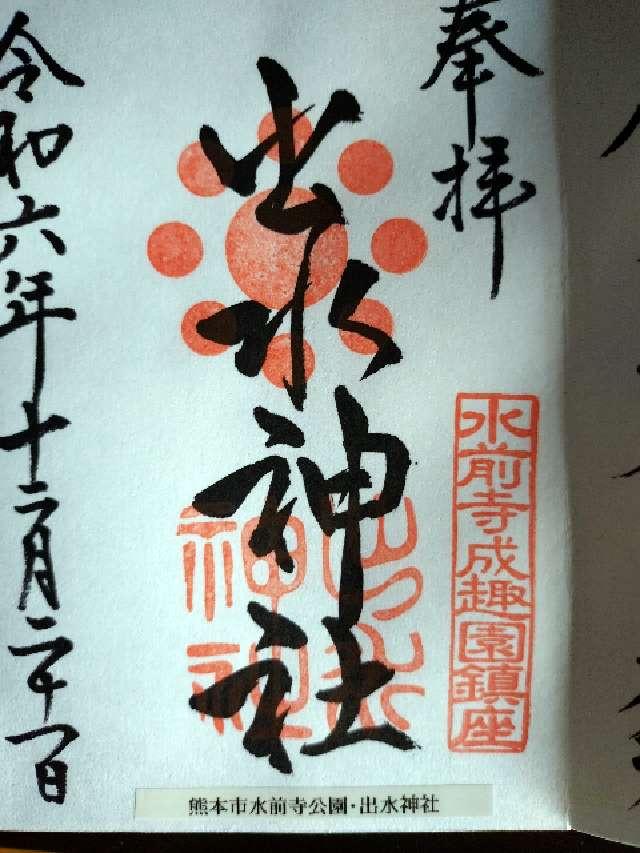 奉拝
水前寺成趣園鎮座
出水神社
出水神社
令和六年十二月二十一日
熊本市水前寺公園・出水神社